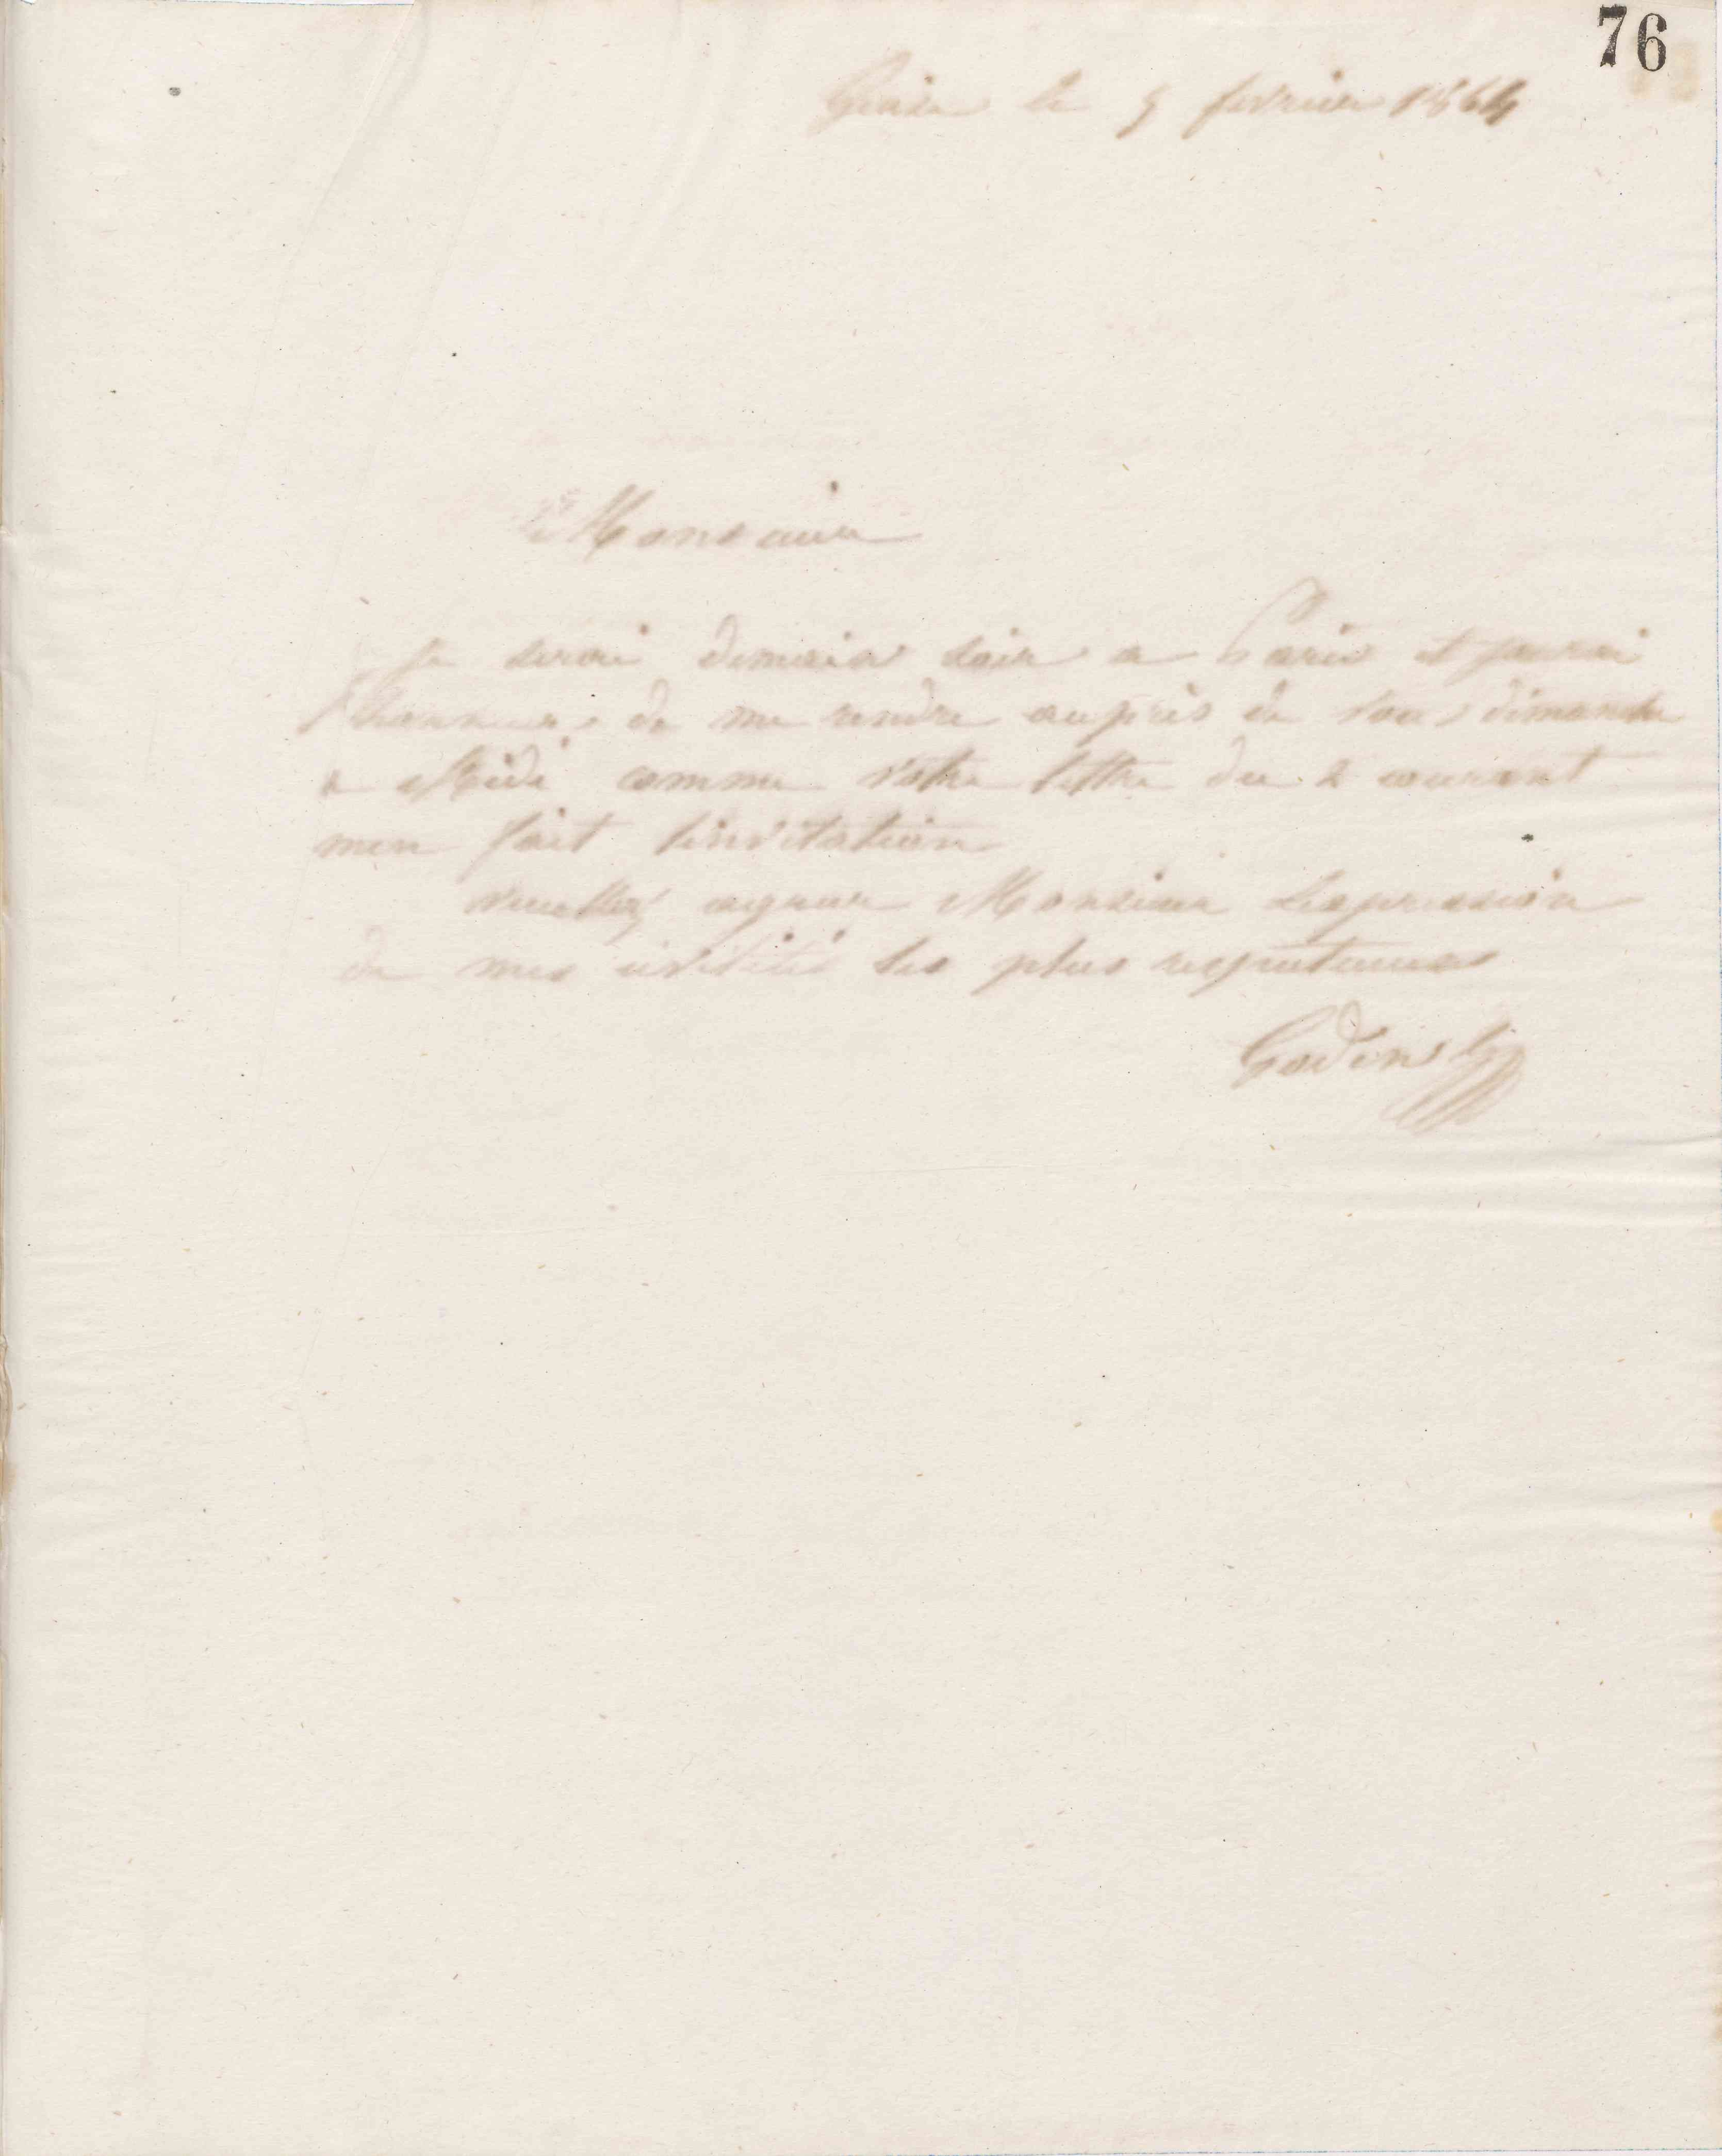 76
Guise le 5 février 1864
Monsieur
Je serai demain soir a Paris et jaurai
lhonneur de me rendre auprès de vous dimanche
a Midi comme votre lettre du 2 courant
men fait linvitation
veuillez agréer Monsieur lexpression
de mes civilités les plus respectueuses
Godin